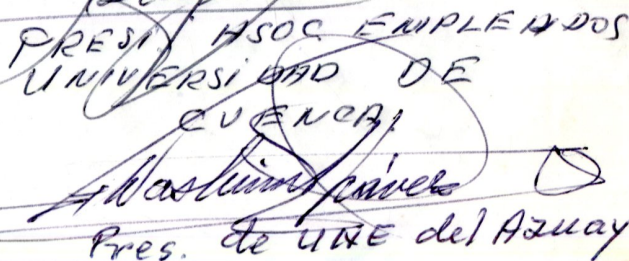 PRESI. ASOC EMPLEADOS
UNIVERSIDAD DE
CUENCA.
Pres. de UNE del Azuay